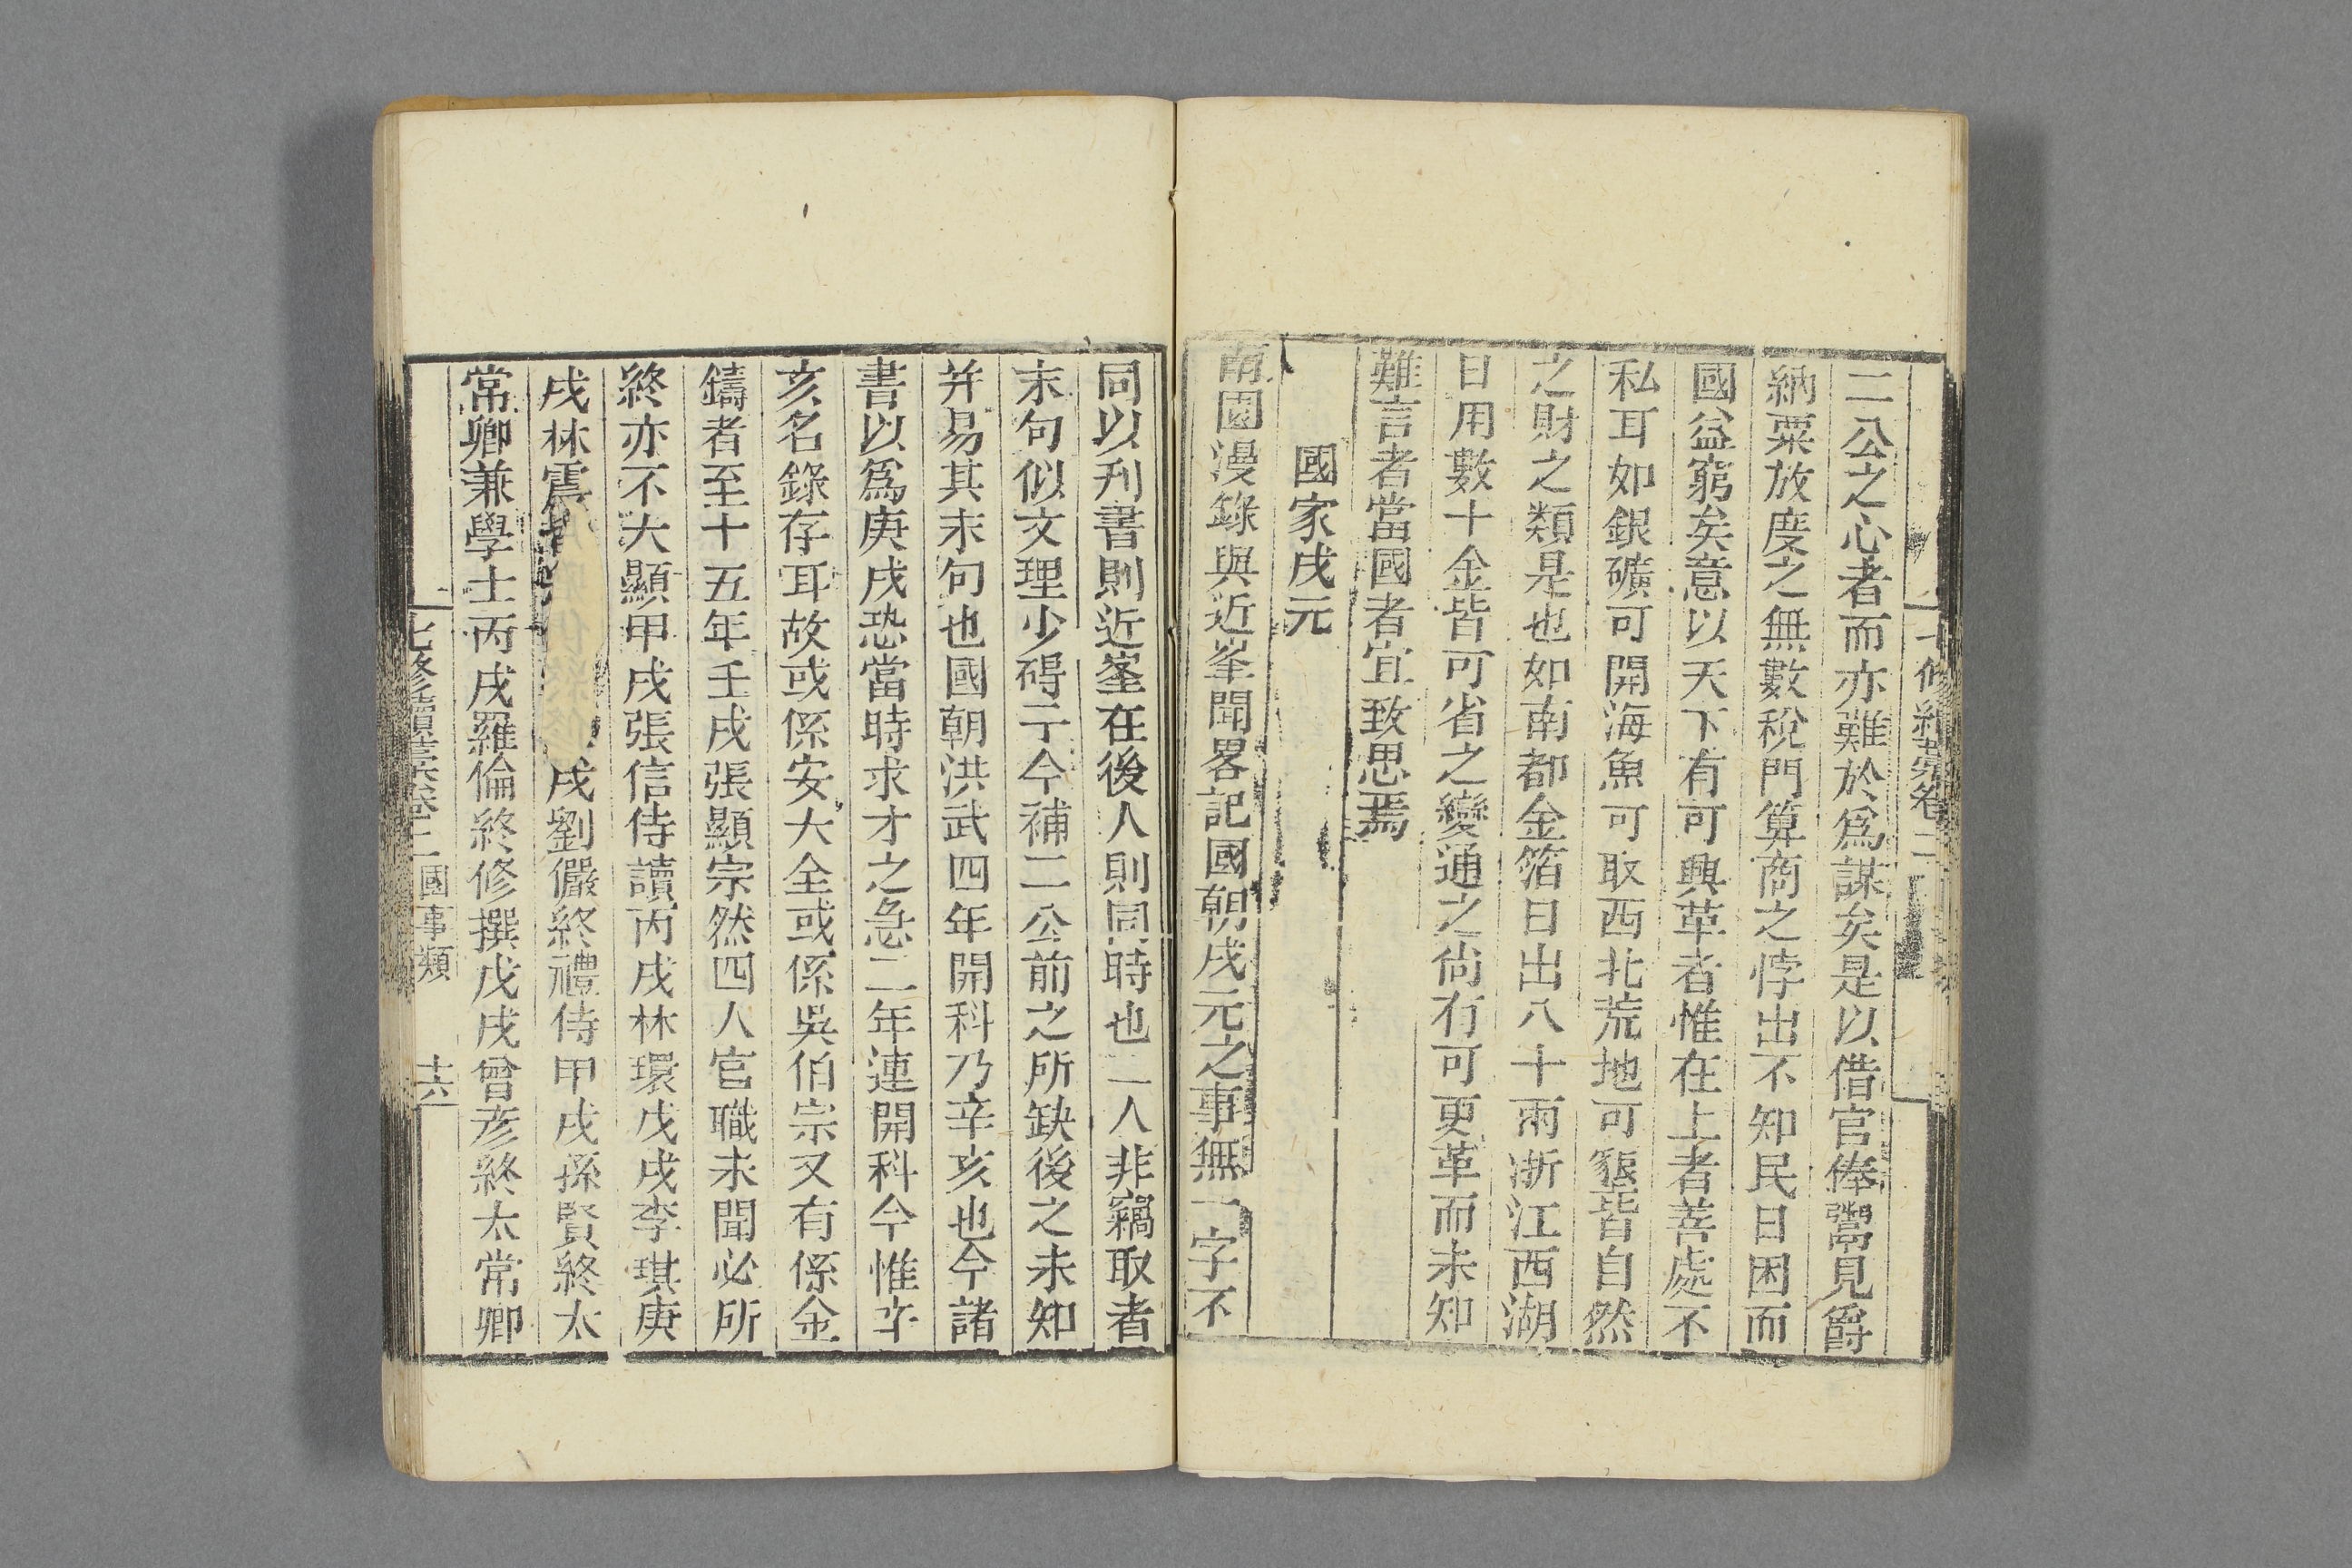 二公之心者而亦難於爲謀矣是以借官俸鬻見爵
納粟放度之無數稅門算商之悖出不知民日困而
國益窮矣意以天下有可興革者惟在上者善處不
私耳如銀礦可開海魚可取西北荒地可懇皆自然
之財之類是也如南都金箔日出八十兩浙江西湖
日用數十金皆可省之變通之尙有可更革而未知
難言者當國者宜致思焉
國家戌元
南園漫錄與近峯聞畧記國朝戌元之事無一字不
同以刋書則近峯在後人則同時也二人非竊取者
末句似文理少碍予今補二公前之所缺後之未知
并易其末句也國朝洪武四年開科乃辛亥也今諸
書以爲庚戌恐當時求才之急二年連開科今惟辛
亥名錄存耳故或係安大全或係吳伯宗又有係金
鑄者至十五年壬戌張顯宗然四人官職未聞必所
終亦不大顯甲戌張信侍讀丙戌林環戊戌李琪庚
戌林震 戌劉儼終禮侍甲戌孫賢終太
常卿兼學士丙戌羅倫終修撰戊戌曾彥終太常卿
七修續藁卷二 國事類 十六